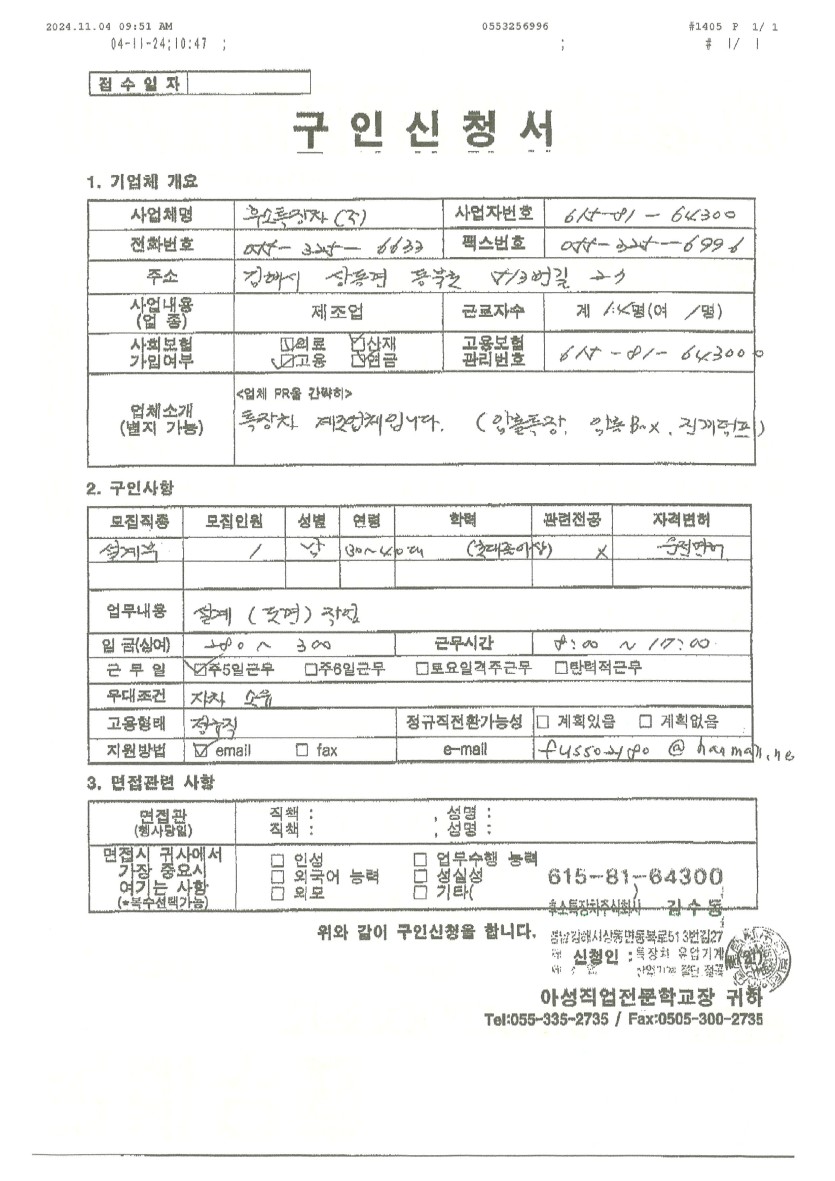 2024.11.04 09:51 AM 0553256996 #1405 P 1/ 1
04-11-24;10:47 ; ; # 1/ 1
접수일자
구인신청서
1. 기업체 개요
사업체명 후소특장차(주) 사업자번호 615-81-64300
전화번호 055-325-6633 팩스번호 055-325-6996
주소 김해시 상동면 동북로 513번길 27
사업내용 (업 종) 제조업 근로자수 계 명(여 1명)
사회보험 가입여부 □의료 □산재 □고용 □연금 고용보험 관리번호 615-81-643000
업체소개 (별지 가능) <업체 PR을 간략히>
특장차 제조업체입니다. (암롤특장, 암롤Box, 진개덤프)
2. 구인사항
모집직종 모집인원 성별 연령 학력 관련전공 자격면허
설계부 1 남 30~40대 (초대졸이상) x 운전면허
업무내용 설계 (도면) 작업
임 금(상여) 280 ~ 300 근무시간 8:00 ~ 17:00
근 무 일 ☑주5일근무 □주6일근무 □토요일격주근무 □탄력적근무
우대조건 자차 소유
고용형태 정규직 정규직전환가능성 □ 계획있음 □ 계획없음
지원방법 ☑ email □ fax e-mail fusso2480 @ hanmail.ne
3. 면접관련 사항
면접관 (행사당일) 직책 : , 성명 :
직책 : , 성명 :
면접시 귀사에서 가장 중요시 여기는 사항 (*복수선택가능)
□ 인성 □ 업무수행 능력
□ 외국어 능력 □ 성실성
□ 외모 □ 기타( )
615-81-64300
후소특장차주식회사 김수동
위와 같이 구인신청을 합니다.
경남김해시상동면동북로513번길27
신청인 : 특장차 유압기계
산업기계 절단 절곡
아성직업전문학교장 귀하
Tel:055-335-2735 / Fax:0505-300-2735